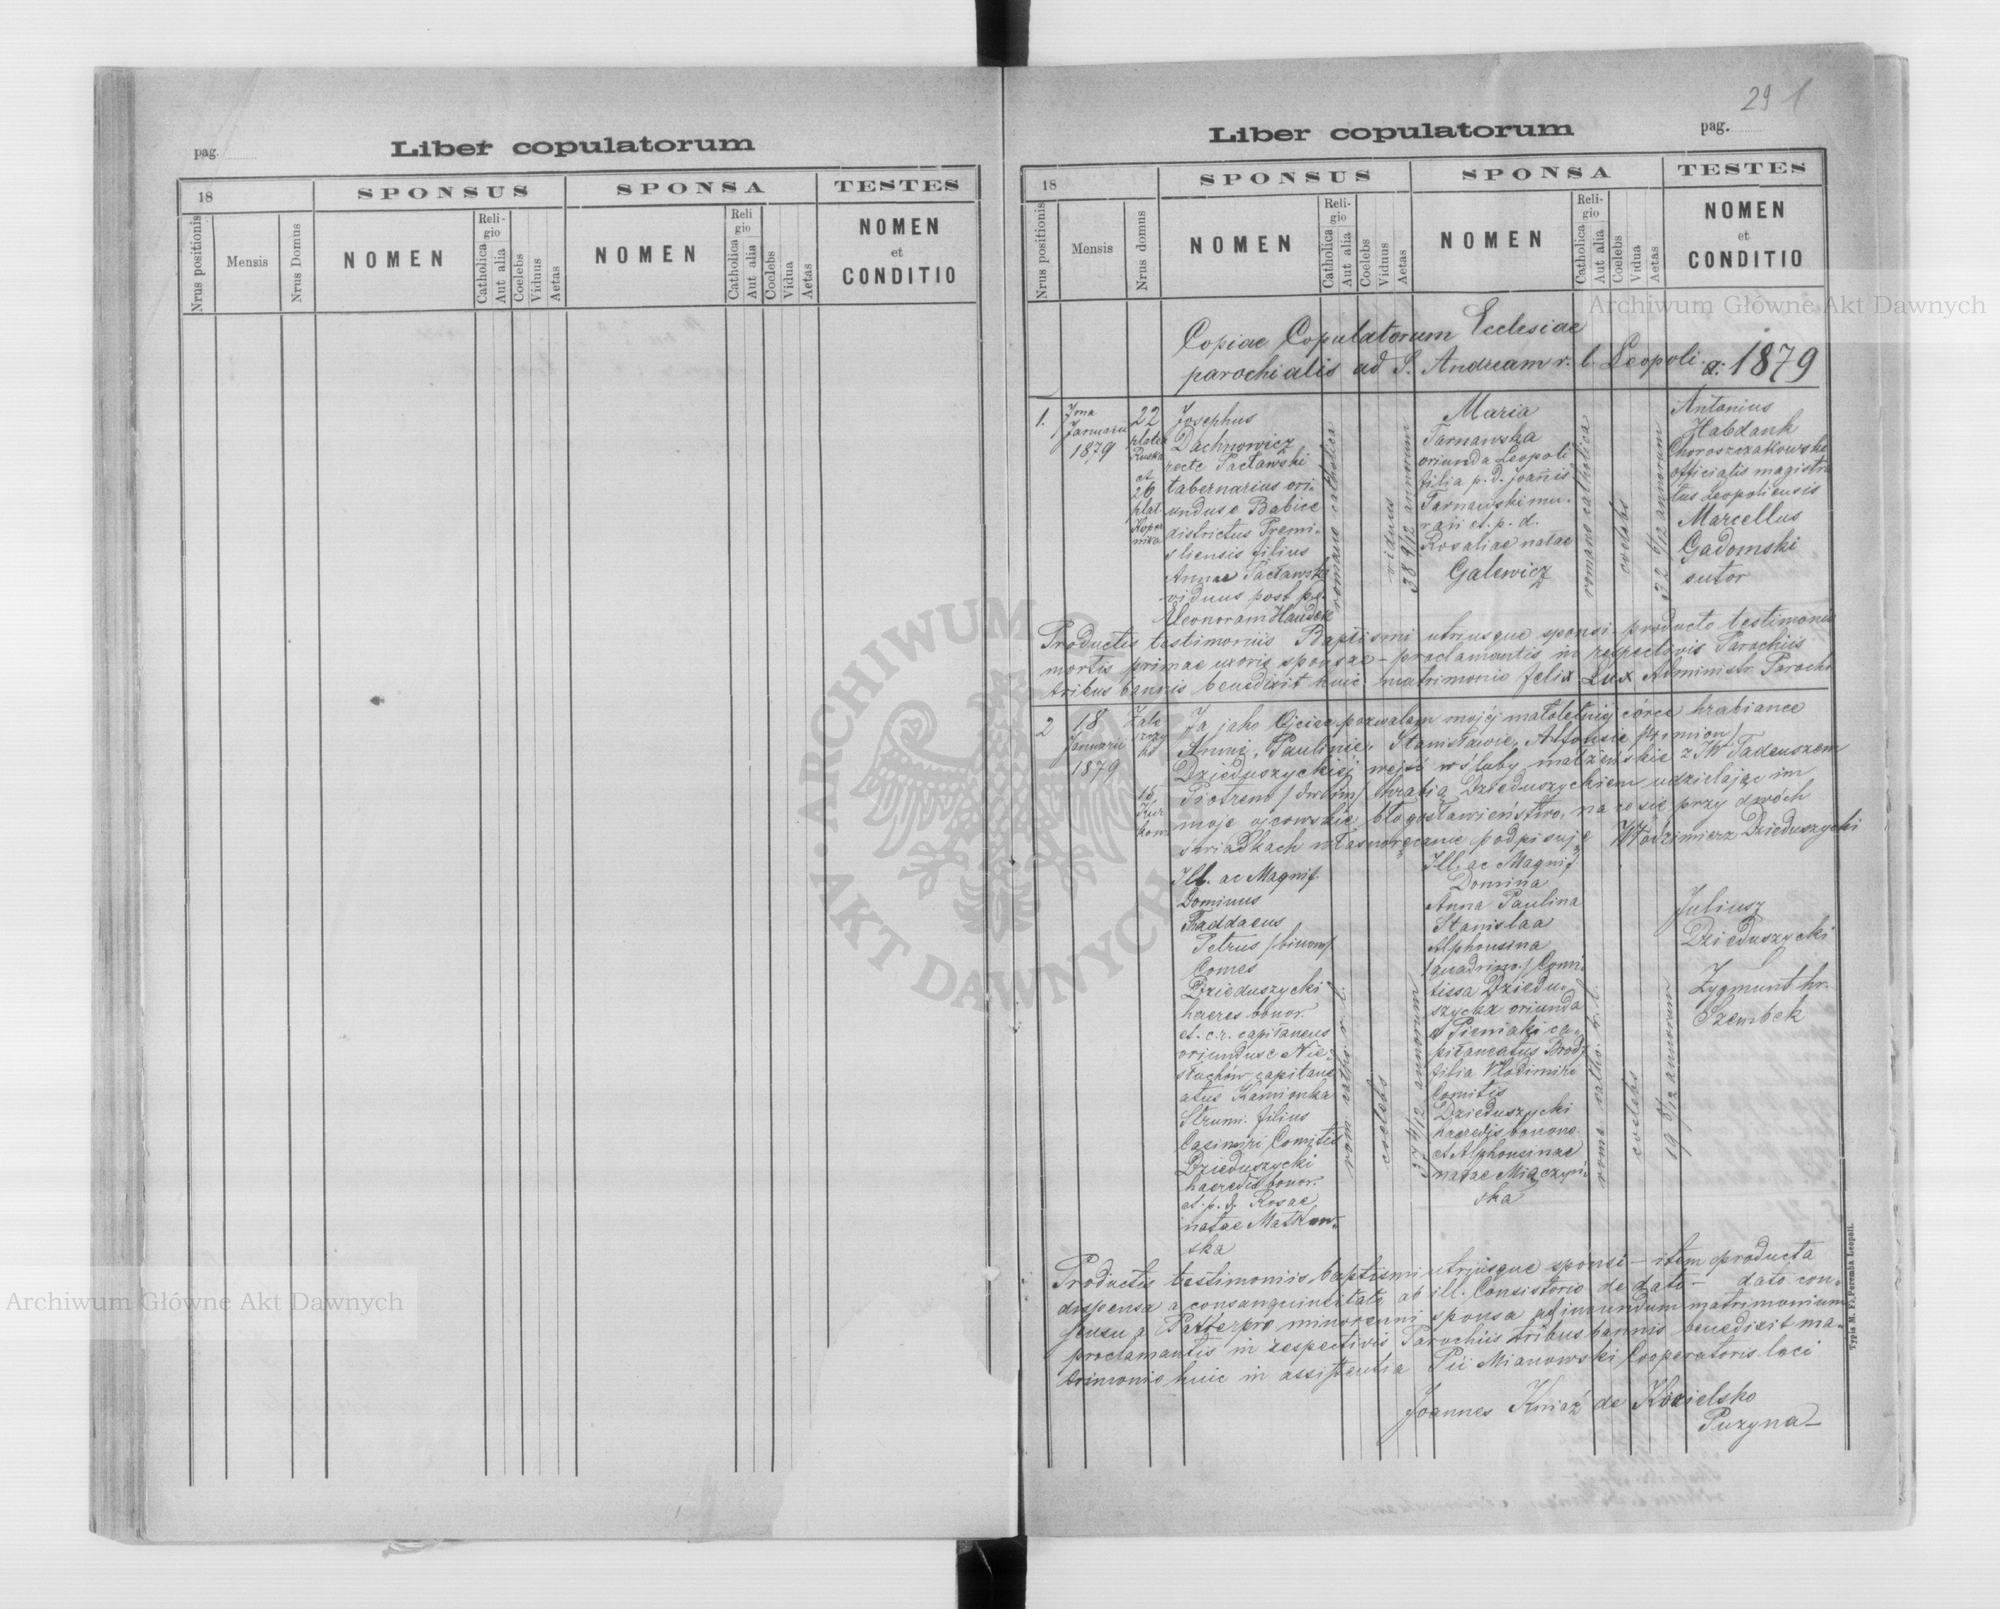 pag.
Liber copulatorum
18
SPONSUS
SPONSA
TESTES
Nrus positionis
Mensis
Nrus Domus
NOMEN
Religio
Catholica
Aut alia
Coelebs
Viduus
Aetas
NOMEN
Religio
Catholica
Aut alia
Coelebs
Vidua
Aetas
NOMEN
et
CONDITIO
29 1
Liber copulatorum
pag.
18
SPONSUS
SPONSA
TESTES
Nrus positionis
Mensis
Nrus domus
NOMEN
Religio
Catholica
Aut alia
Coelebs
Viduus
Aetas
NOMEN
Religio
Catholica
Aut alia
Coelebs
Vidua
Aetas
NOMEN
et
CONDITIO
Copiae Copulatorum Ecclesiae
parochialis ad S. Andream r. l. Leopoli a: 1879
1.
Januarii
1879
22
platea
Ruska
et
26
plat.
Koper
nika
Josephus
Dachnowicz
recte Pacławski
tabernarius ori-
undus e Babice
districtus Premi-
sliensis filius
Annae Pacławska
viduus post p.
Eleonoram
romano catholica
viduus
38 9/12 annorum
Maria
Tarnawska
oriunda Leopoli
filia p. d. Joannis
Tarnawski mu-
rarii et p. d.
Rosaliae natae
Galewicz
romano catholica
coelebs
6/12 annorum
Antonius
Habdank
Choroszczakowski
officialis magistra
tus Leopoliensis
Marcellus
Gadomski
sutor
Productis testimoniis Baptismi utriusque sponsi producto testimonio
mortis primae uxoris sponsae – proclamantis in respectivis Parochiis
tribus bannis benedixit huic matrimonio Felix Lux Administr. Paroch.
2
18
Januarii
1879
Zale
szczy
ki
15
Kur
kowa
Ja jako Ojciec pozwalam mojéj małoletniéj córce hrabiance
Annie, Paulinie, Stanisławie, Alfonsie /4 imion/
Dzieduszyckiéj wejść w śluby małżeńskie z JW Tadeuszem
Piotrem /dwóim/ hrabią Dzieduszyckiem udzielając im
moje ojcowskie błogosławieństwo, na co się przy dwóch
świadkach własnoręcznie podpisuję Włodzimierz Dzieduszycki
Ill. ac Magnif.
Dominus
Thaddaeus
Petrus /binom/
Comes
Dzieduszycki
haeres bonor.
et c. r. capitaneus
oriundus e Nie-
słuchów capitane
atus Kamionka
Strum. filius
Casimiri Comitis
Dzieduszycki
haeredis bonor.
et p. d. Rosae
natae Matkow-
ska
rom. catho. r. l.
coelebs
37 annorum
Ill. ac Magnif.
Domina
Anna Paulina
Stanislaa
Alphonsina
/quadrino./ Comi-
tissa Dziedu-
szycka oriunda
e Pieniaki ca-
pitaneatus Brody
filia Vladimiri
Comitis
Dzieduszycki
haeredis bonoro.
et Alphonsinae
natae Miączyń-
ska
rome catho. r. l.
coelebs
19 8/12 annorum
Juliusz
Dzieduszycki
Zygmunt hr.
Szembek
Productis testimoniis baptismi utriusque sponsi – item producta
dispensa a consanguinitate ab ill. Consistorio de dato – dato con-
sensu a Patre pro minorenni sponsa ad ineundum matrimonium
proclamantis in respectivis Parochiis tribus bannis benedixit ma-
trimonio huic in assistentia Pii Mianowski Cooperatoris loci
Joannes Kniaź de Kozielsko
Puzyna
Typis M. F. Poremba Leopoli.
Archiwum Główne Akt Dawnych
Archiwum Główne Akt Dawnych
ARCHIWUM
AKT DAWNYCH